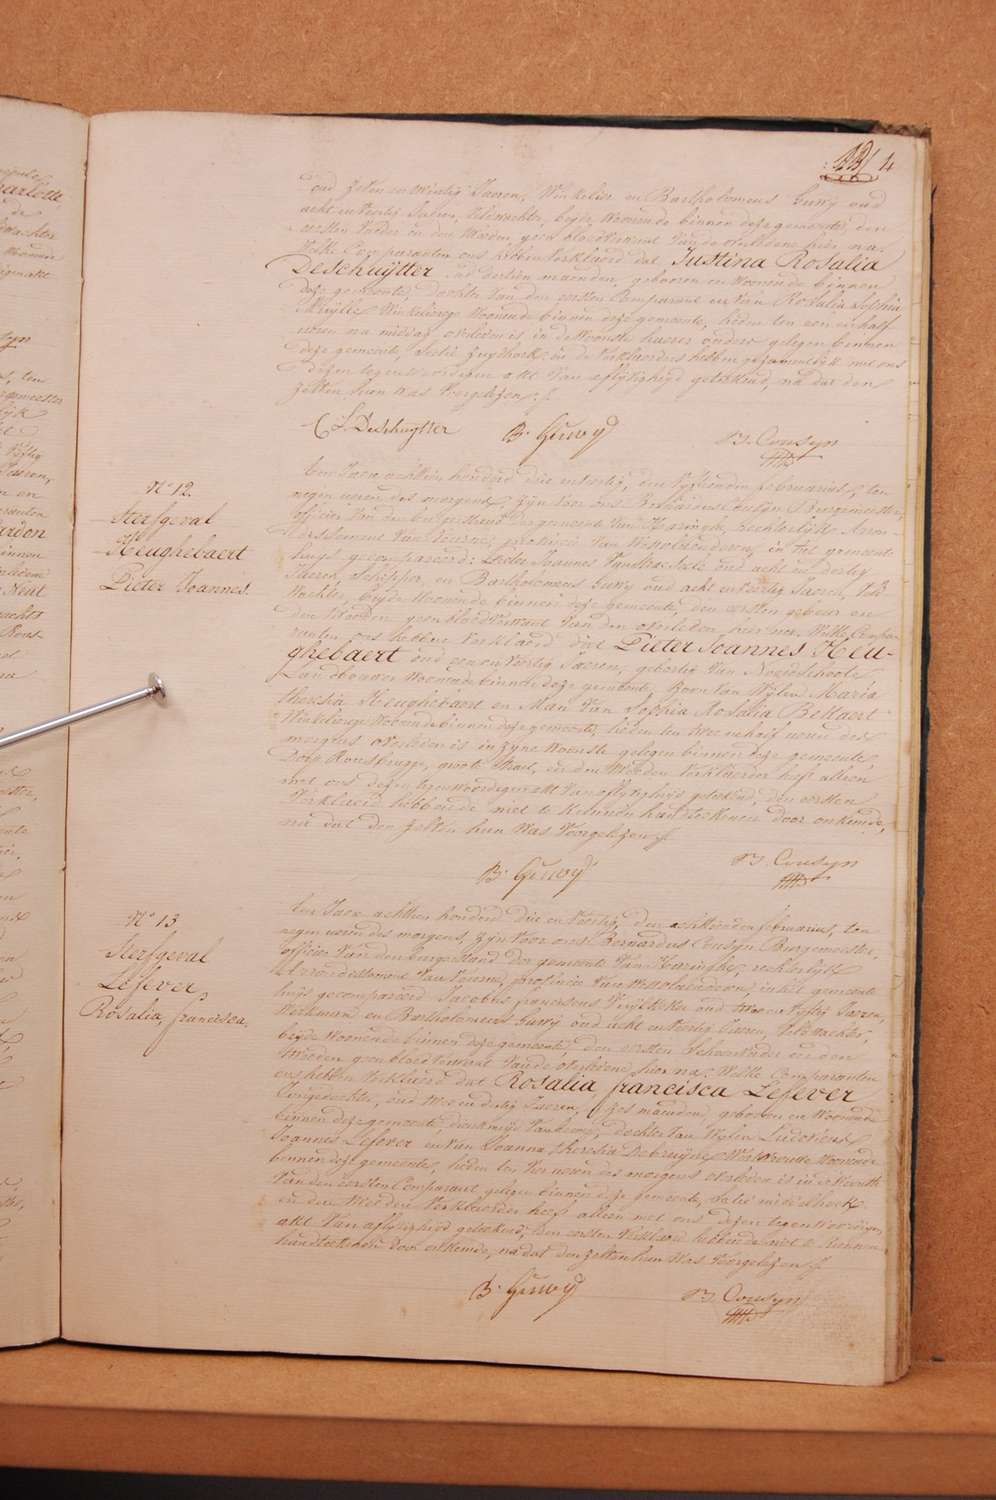 4
oud zeven en veertig Jaeren, Winkelier en Bartholomeus Guwÿ oud
acht en veertig Jaeren, Veldwachter, beyde Woonende binnen deze gemeente, den
eersten Vader en den tweeden geen bloedverwant Van de overledene hier na.
Welke Comparanten ons hebben Verklaerd dat Justina Rosalia
Deschuÿtter oud dertien maenden, geboren en Woonende binnen
deze gemeente, dochter Van den eersten Comparant en Van Rosalia Sophia
Winkelierige Woonende binnen deze gemeente, heden ten een en half
uren na middag overleden is in de Woonste haerer ouders gelegen binnen
deze gemeente, Sectie Zuydhoek; en de Verklaerders hebben gezaementlijk met ons
dezen tegenwoordigen akt Van aflyvigheyd geteekend, na dat den
zelven hun was Voorgelezen.
C L Deschuytter B. Guwÿ B. Cousyn
N° 12.
Sterfgeval
Heughebaert
Pieter Joannes.
Een Jaere achttien honderd drie en veertig, den vyftienden februarius, ten
negen uren des morgens, zyn Voor ons Bernardus Cousyn Burgemeester,
officier Van den burgerstand der gemeente Van Haringhe, rechterlijk Aron-
dissement Van Veurne, provincie Van Westvlanderen, in het gemeente
huys gecompareerd: Pieter Joannes oud acht en dertig
Jaeren, Schepper, en Bartholomeus Guwy oud acht en veertig Jaeren, Veld
Wachter, beyde Woonende binnen deze gemeente den eersten gebuer en
den tweeden geen bloedverwant Van den overleden hier na, Welke Compa-
ranten ons hebben Verklaerd dat Pieter Joannes Heu-
ghebaert oud een en veertig Jaeren, geboortig Van Noordschoote
Landbouwer Woonende binnen deze gemeente, Zoon Van Wylen Maria
theresia Heughebaert en Man Van Sophia Rosalia Bekaert
Winkelierige Woonende binnen deze gemeente, heden ten twee en half uren des
morgens overleden is in zyne Woonste gelegen binnen deze gemeente
Dorp Rousbrugge, groote Straet, en den tweeden Verklaerder heeft alleen
met ons dezen tegenwoordigen akt Van aflyvigheyd geteekend, den eersten
Verklaerd hebbende niet te kunnen handteekenen door onkunde,
na dat den zelven hun Was Voorgelezen.
B. Guwÿ B. Cousyn
N° 13
Sterfgeval
Lefever
Rosalia, francisca.
Een Jaer achttien honderd drie en Veertig, den achttienden februarius, ten
negen uren des morgens, zyn Voor ons Bernardus Cousyn Burgemeester,
officier Van den burgerstand der gemeente Van Haeringhe, rechterlijk
Arrondissement Van Veurne, provincie Van Westvlanderen, in het gemeente
huys gecompareerd Jacobus franciscus Vuylsteke oud twee en Vyftig Jaeren,
Werkman en Bartholomeus Guwÿ oud acht en Veertig Jaeren, Veldwachter,
beyde Woonende binnen deze gemeente, den eersten Schoonbroeder en den
tweeden geen bloedverwant Van de overledene hier na; Welke Comparanten
ons hebben Verklaerd dat Rosalia francisca Lefever
oud twee en dertig Jaeren, zes maenden, geboren en Woonende
binnen deze gemeente, dienstmeyd Van beroep, dochter Van Wylen Ludovicus
Joannes Lefever en Van Joanna theresia Debruyne Werkvrouwe Woonende
binnen deze gemeente, heden ten Vier uren des morgens overleden is in de Woonste
Van den eersten Comparant gelegen binnen deze gemeente, Sectie middelhoek
en den tweeden Verklaerder heeft alleen met ons dezen tegenwoordigen
akt Van aflyvigheyd geteekend, den eersten Verklaerd hebbende niet te kunnen
handteekenen door onkunde, na dat den zelven hun Was Voorgelezen.
B. Guwÿ B. Cousyn